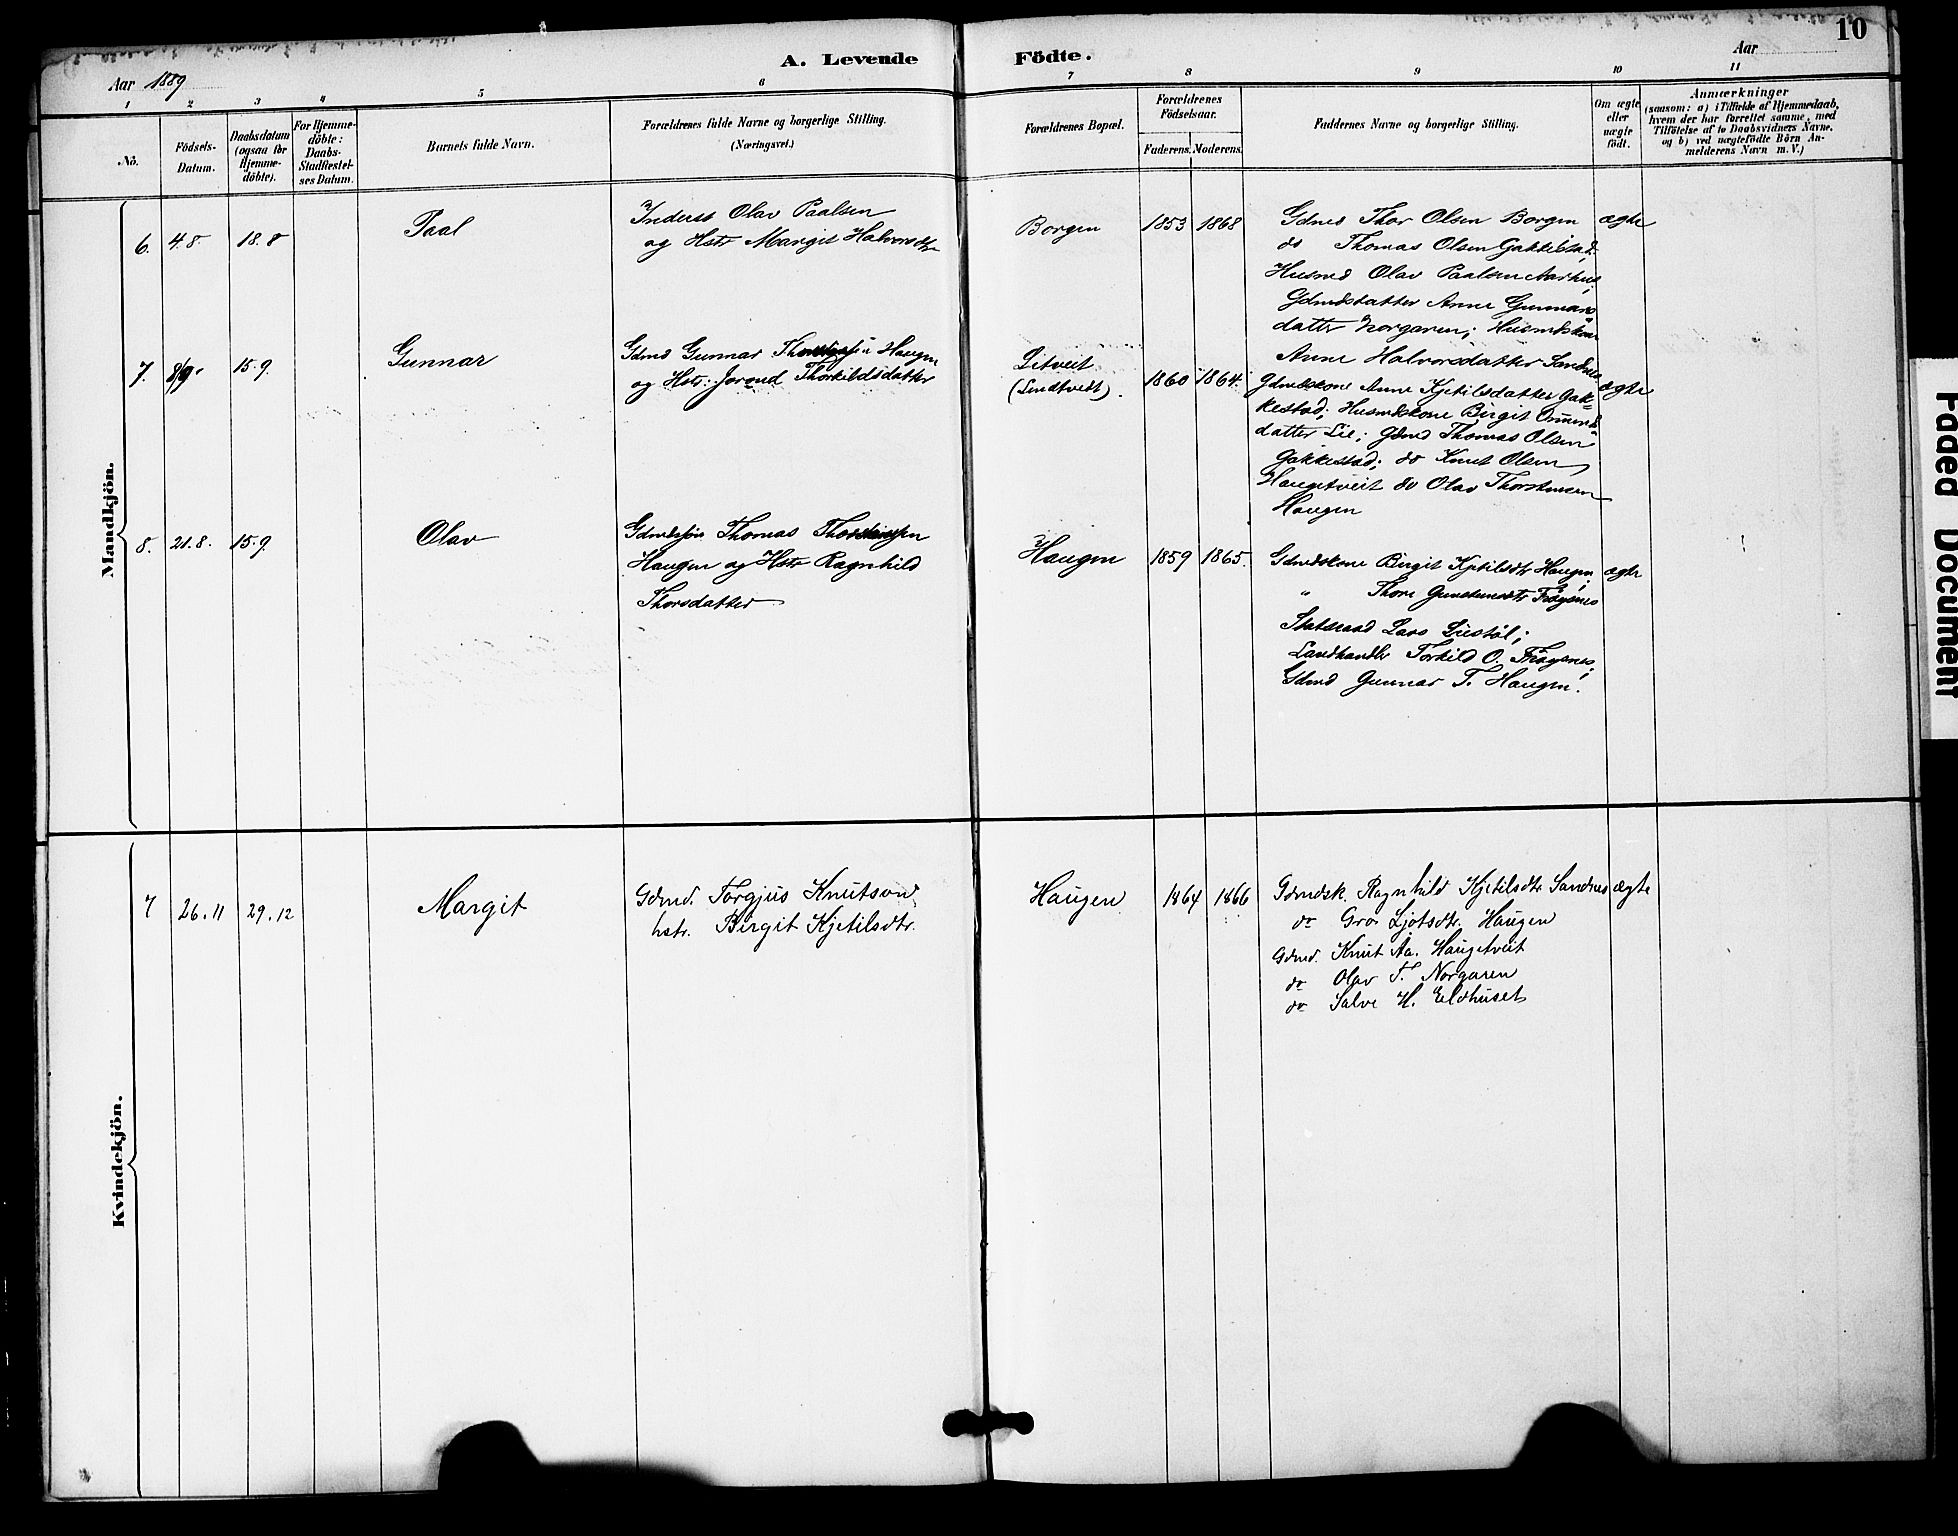 10
A. Levende Födte.
Aar 1889
Aar
1 2 3 4 5 6 7 8 9 10 11
No.
Födsels-
Datum.
Daabsdatum
(ogsaa for
Hjemme-
döbte).
For Hjemme-
döbte:
Daabs-
Stadfæstel-
ses Datum.
Barnets fulde Navn.
Forældrenes fulde Navne og borgerlige Stilling.
(Næringsvei.)
Forældrenes Bopæl.
Forældrenes
Födselsaar.
Faderens. Moderens.
Faddernes Navne og borgerlige Stilling.
Om ægte
eller
uægte
födt.
Anmærkninger
(saasom: a) i Tilfælde af Hjemmedaab,
hvem der har forrettet samme, med
Tilföielse af to Daabsvidners Navne,
og b) ved uægtefödte Börn An-
melderens Navn m. V.)
Mandkjön.
6. 4.8. 18.8 Paal
Inderst Olav Paalsen
og Hstr Margit Halvorsdtr
Borgen 1853 1868
Gdmd Thor Olsen Borgen ægte
do Thomas Olsen Gakkestad
Husmd Olav Paalsen Aarhus
Gdmdsdatter Anne Gunnars
datter Norgaren; Husmdskone
Anne Halvorsdatter Sandnes
7. 8/9. 15.9. Gunnar
Gdmd Gunnar Haugen
og Hstr: Jorand Thorkildsdatter
Litveit
(Lindtveit).
1860 1864.
Gdmdskone Anne Kjetilsdatter Gak- ægte
kestad; Husmdskone Birgit
datter Lie; Gdmd Thomas Olsen
Gakkestad; do Knut Olsen
Haugetveit do Olav Thorstensen
Haugen
8. 21.8. 15.9. Olav
Gdmdssön Thomas
Haugen og Hstr Ragnhild
Thorsdatter
Haugen 1859 1865.
Gdmdskone Birgit Kjetilsdtr Haugen; ægte
" Thone Frøysnes
Statsraad Lars Liestøl;
Landhandler Torkild O. Frøysnes;
Gdmd Gunnar T. Haugen.
Kvindekjön.
7 26.11 29.12 Margit
Gdmd. Torgjus Knutson
hstr. Birgit Kjetilsdtr.
Haugen 1864 1866
Gdmdsk. Ragnhild Kjetilsdtr Sandnes ægte
do Gro Ljotsdtr. Haugen
Gdmd. Knut Aa. Haugetveit
do Olav T. Norgaren
do Salve H. Eldhuset
Faded Document